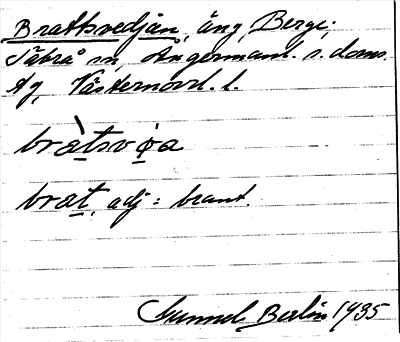 Brattsvedjan, äng Berge,
Säbrå sn, Ångermanl. s. doms.
Ag, Västernorrl. l.
bràtsvǫa
brat, adj = brant.
Gunnel Berlin 1935